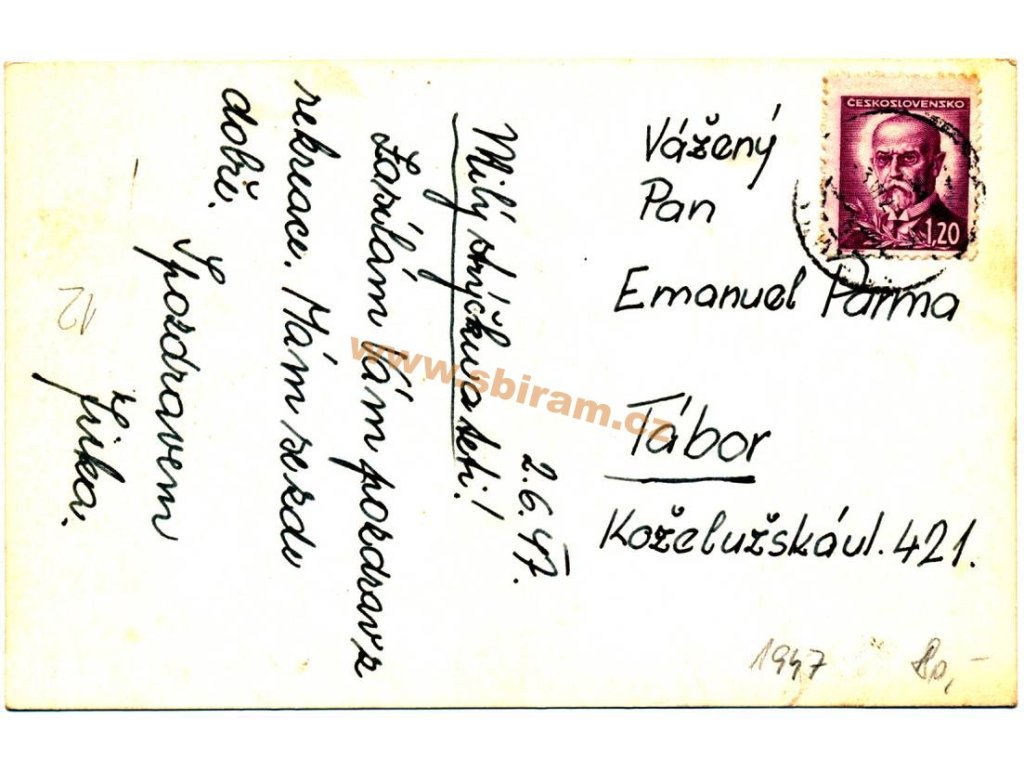 2.6.47.
Milý strýčku a teti!
Zasílám Vám pozdrav z
rekreace. Mám se zde
dobře.
S pozdravem
Jirka.
12
ČESKOSLOVENSKO
1,20
Vážený
Pan
Emanuel Parma
Tábor
Koželužská ul. 421.
1947
80,-
www.sbiram.cz